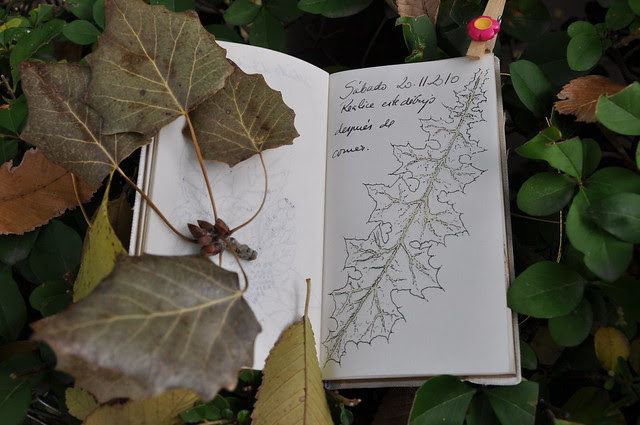 Sábado 20.11.2010
Realice este dibujo
después de
comer.